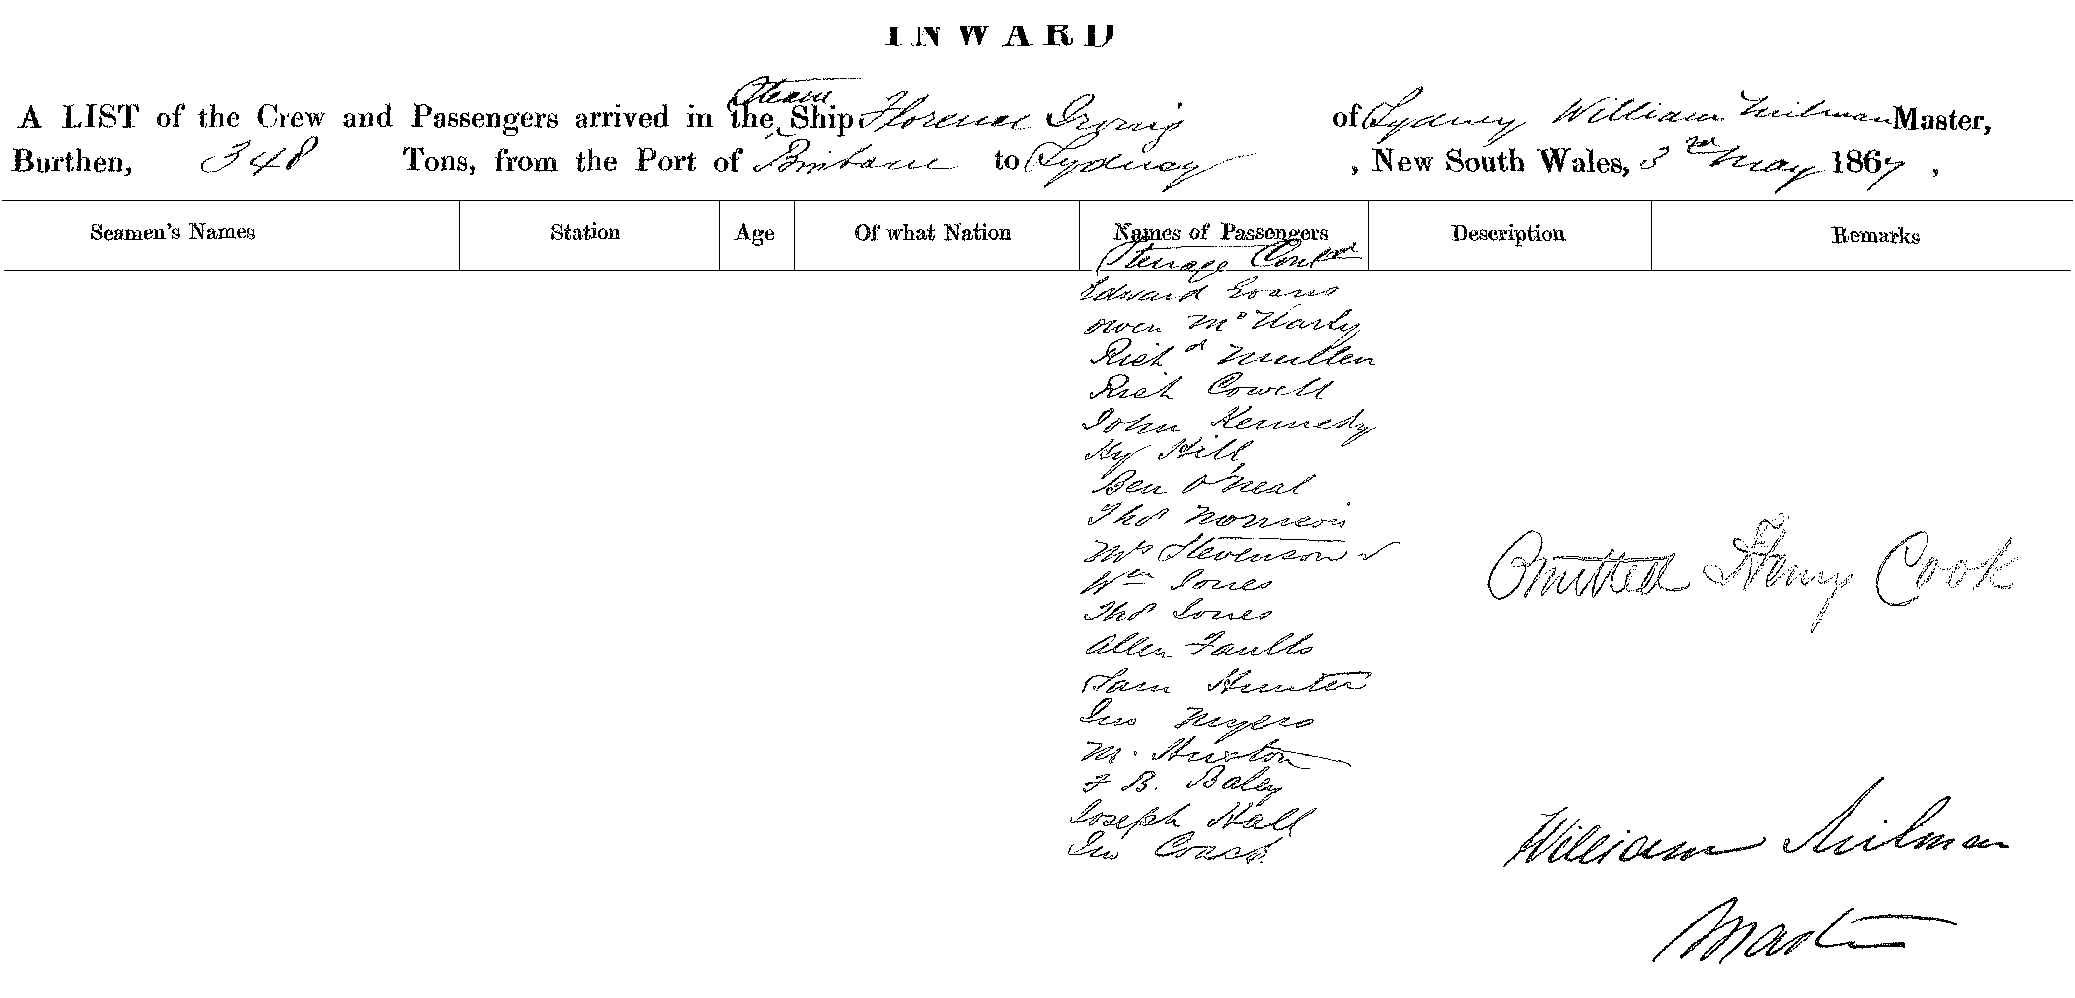 INWARD
A LIST of the Crew and Passengers arrived in the Steam Ship Florence Irving of Sydney William Milman Master,
Burthen, 348 Tons, from the Port of Brisbane to Sydney, New South Wales, 3rd May 1867,
Seamen's Names Station Age Of what Nation Names of Passengers Description Remarks
Steerage Contd
Edward Evans
Owen McHarly
Richd Mullen
Rich Cowell
John Kennedy
Hy Hill
Ben O'Neal
Thos Morrison
Mrs Stevenson
Wm Jones
Thos Jones
Allen Faulls
Sam Hunter
Jno Myers
M. Huxton
F B. Baley
Joseph Hall
Jno
Omitted Henry Cook
William Milman
Master